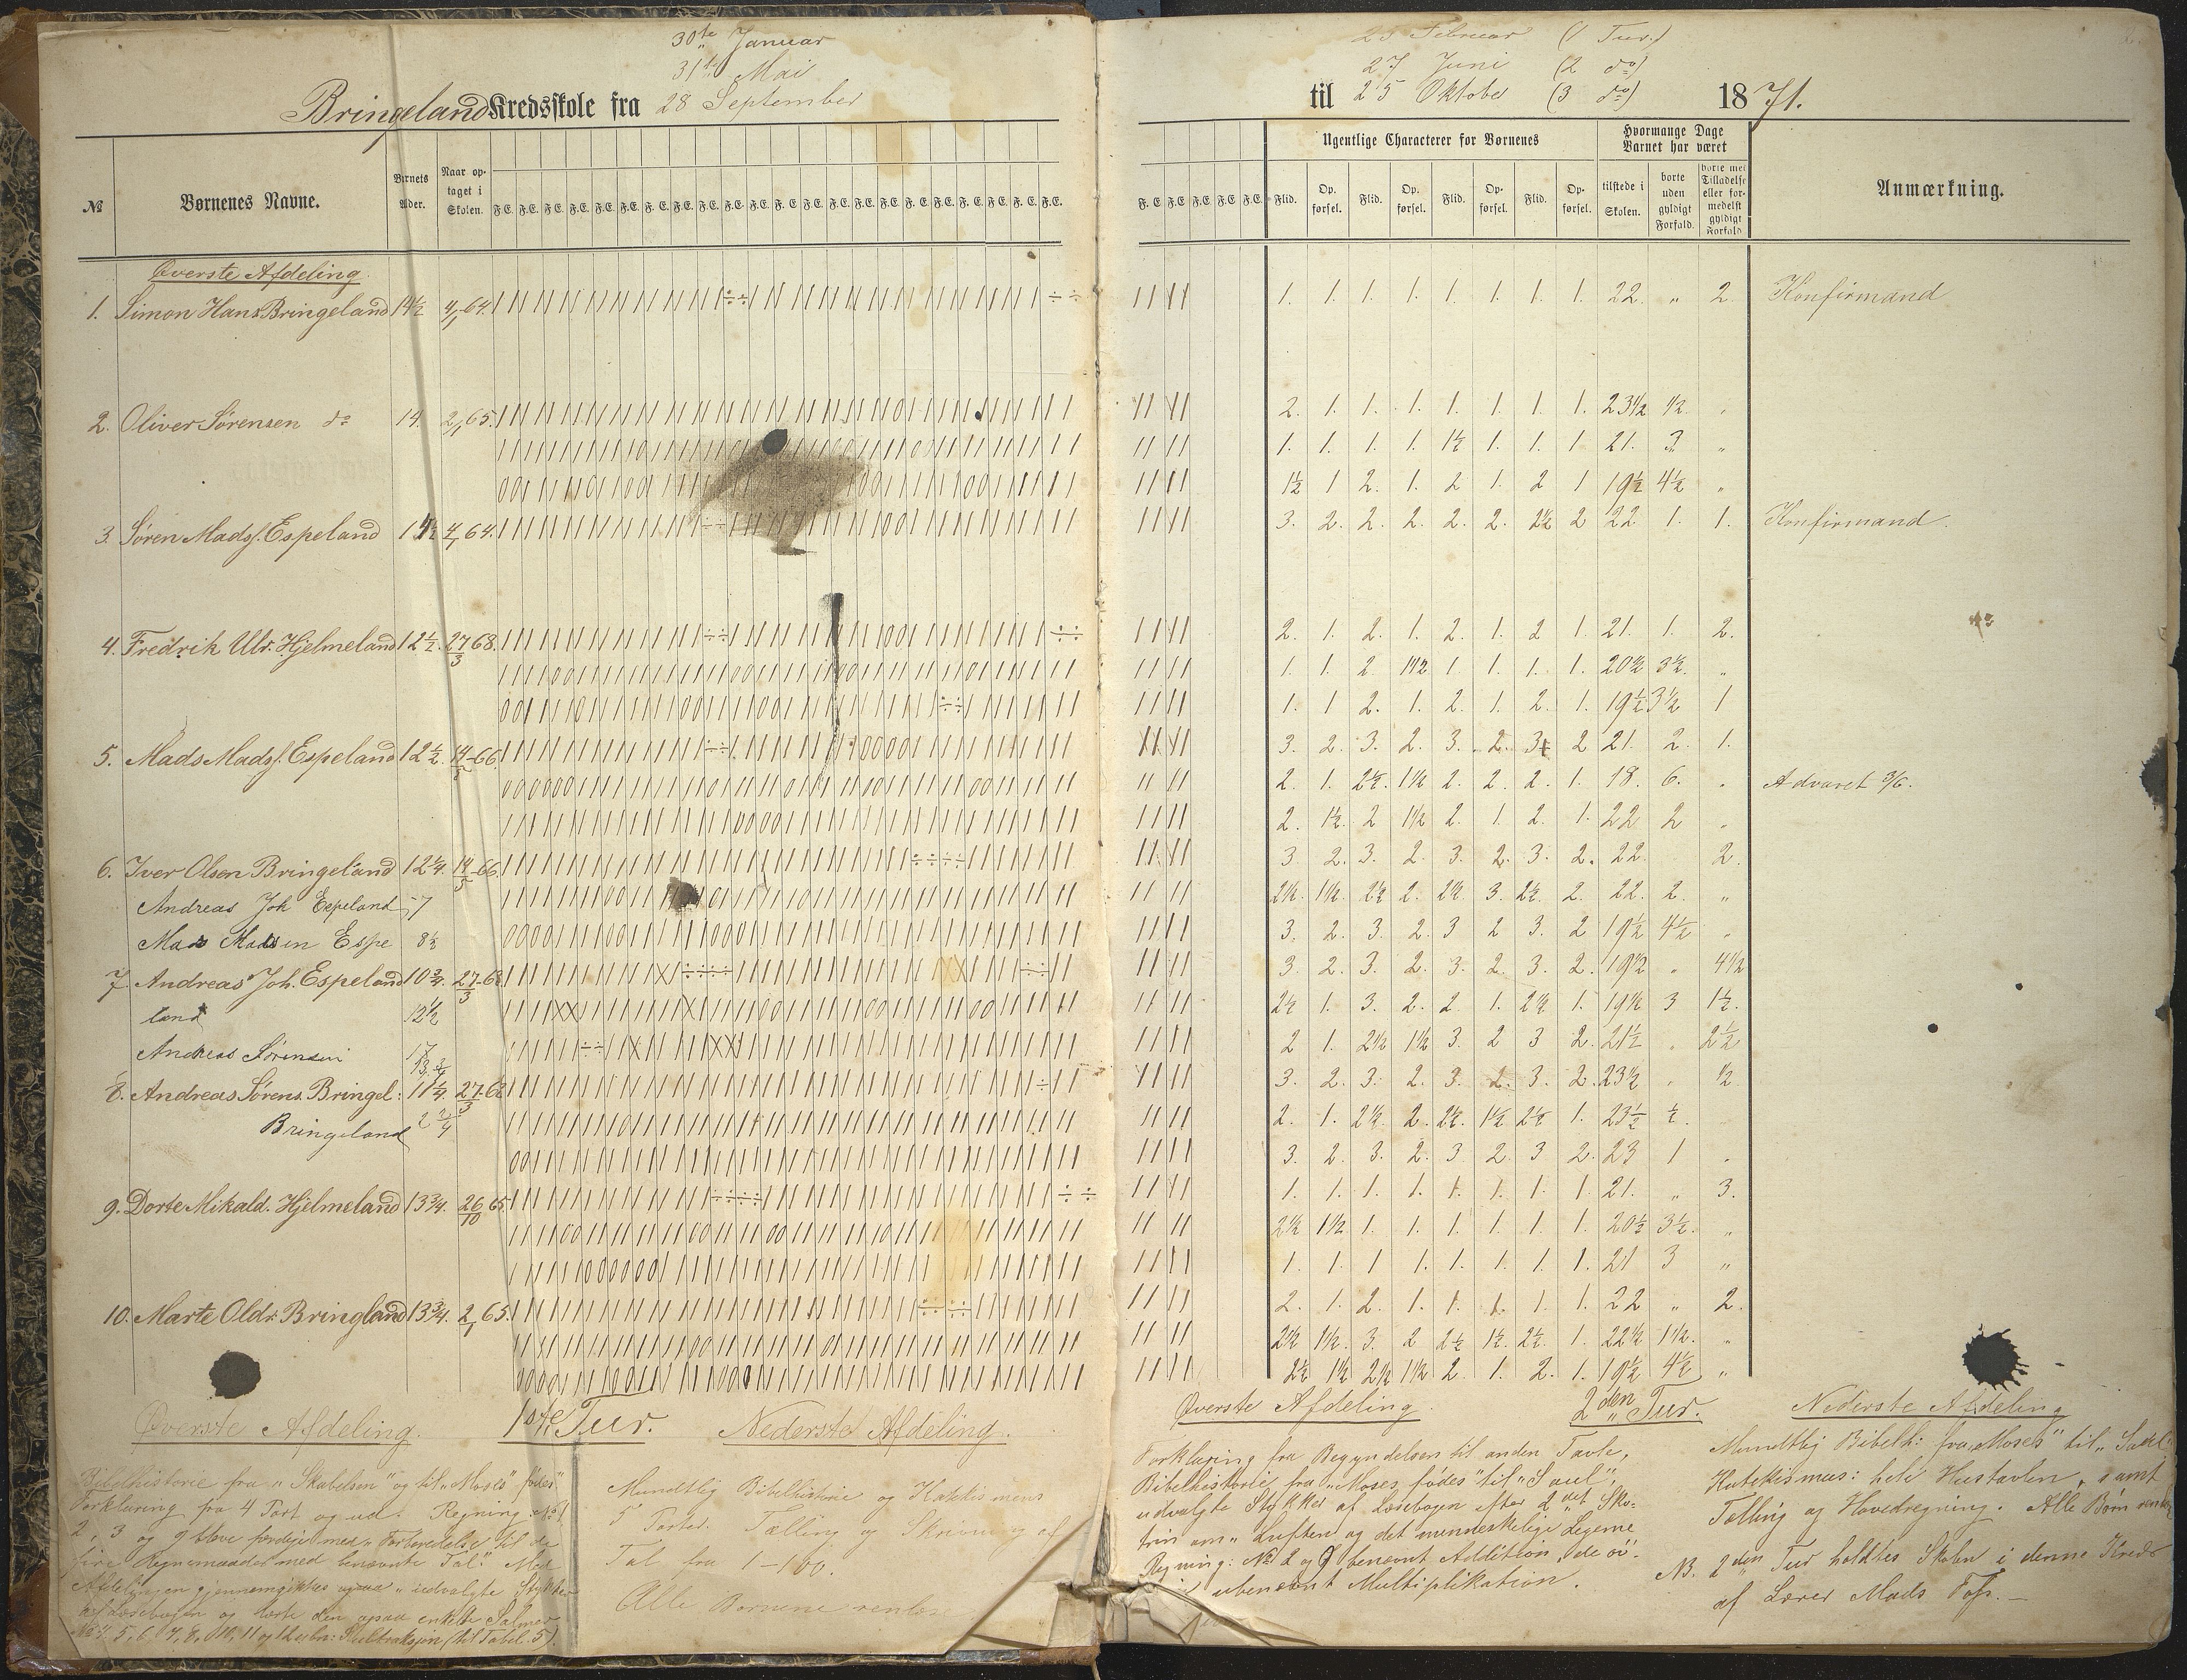 30te Januar
31te Mai
Bringeland Kredsskole fra 28 September
№
Børnenes Navne.
Barnets Alder.
Naar optaget i Skolen.
F.E. F.E. F.E. F.E. F.E. F.E. F.E. F.E. F.E. F.E. F.E. F.E. F.E. F.E. F.E. F.E. F.E. F.E. F.E. F.E. F.E. F.E.
Øverste Afdeling.
1. Simon Hans. Bringeland 14½ 4/1 64.
2. Oliver Sørensen do 14. 2/1 65.
3. Søren Madss. Espeland 14½ 4/1 64.
4. Fredrik Ulr. Hjelmeland 12½. 27/3 68.
5. Mads Madss. Espeland 12½. 14/5 -66.
6. Iver Olsen Bringeland 12¼. 14/5 -66.
Andreas Joh Espeland 7
Mads Madsen Espe 8½
7. Andreas Joh. Espeland 10¾. 27/3 -68.
land 12½
Andreas Sørensen 17
13¾
8. Andreas Sørens. Bringel: 11¼. 27/3 -68
Bringeland 2¾
9. Dorte Mikald. Hjelmeland 13¾. 26/10 65.
10. Marte Oldr. Bringland 13¾. 2/1 65.
Øverste Afdeling. 1ste Tur. Nederste Afdeling.
Bibelhistorie fra "Skabelsen" og til "Moses" fødes"
Forklaring fra 4 Part og ud. Regning: №1
2, 3 og 9 "Forberedelse til de
fire Regnemaader med benævnte Tal". Med
Afdelingen gjennemgikkes ogsaa "udvalgte Stykker
af Læsebogen og lærte den ogsaa enkelte Salmer
№ 4, 5, 6, 7, 8, 10, 11 og
Mundtlig Bibelhistorie og Katekismens
5 Parter. Tælling og Skrivning af
Tal fra 1-100.
Alle Børnene
25 Februar (1 Tur.)
27 Juni (2 do)
til 25 Oktober (3 do) 1871.
F.E F.E F.E F.E F.E.
Ugentlige Characterer for Børnenes
Hvormange Dage Barnet har været
Flid. Opførsel. Flid. Opførsel. Flid. Opførsel. Flid. Opførsel.
tilstede i Skolen.
borte uden gyldigt Forfald.
borte med Tilladelse eller formedelst gyldigt Forfald.
Anmærkning.
1. 1. 1. 1. 1. 1. 1. 1. 22. " 2. Konfirmand
2. 1. 1. 1. 1. 1. 1. 1. 23½ ½.
1. 1. 1. 1. 1½ 1. 1. 1 21. 3. "
1½ 1 2. 1. 2 1. 2 1 19½ 4½ "
3. 2. 2. 2. 2. 2. 2½ 2 22. 1. 1. Konfirmand.
2. 1. 2. 1. 2. 1. 2 1. 21. 1. 2.
1. 1. 2 1½ 1. 1. 1. 1. 20½ 3½. "
1. 1 2. 1. 2. 1. 2. 1. 19½ 3½ 1
3. 2. 3. 2. 3. 2. 3 2 21. 2. 1.
2. 1. 2½. 1½ 2. 2. 2. 1. 18. 6. " Advaret 3/6.
2. 1½. 2 1½ 2. 1. 2. 1. 22 2 "
3 2. 3. 2. 3. 2. 3. 2. 22. 2.
2½. 1½. 2½ 2. 2½. 3 2½. 2. 22. 2. "
3. 2. 3. 2. 3 2 3. 2 19½ 4½ "
3. 2. 3. 2. 3. 2. 3. 2. 19½ " 4½
2½ 1. 3. 2. 2. 1. 2½ 1. 19½ 3 1½.
2 1. 2½ 1½ 3. 2 3 2. 21½ " 2½
3. 2. 3. 2. 3. 2. 3. 2. 23½ " ½
2. 1. 2½. 2. 2½. 1½ 2½ 1. 23½ ½.
3. 2. 3. 2. 3. 2. 3 2. 23 1 "
1. 1. 1. 1. 1. 1. 1. 1 21. " 3.
2½ 1½ 1. 1. 1. 1. 1. 1. 20½ 3½. "
1. 1. 1 1. 1. 1. 1. 1. 21 3 "
2. 1. 2. 1. 1. 1. 1. 1. 22 " 2.
2½ 1½. 3. 2 2½ 1½. 2½. 1. 22½ 1½. "
2½ 1½ 2½ 1½ 2. 1. 2. 1. 19½ 4½ "
Øverste Afdeling. 2den Tur. Nederste Afdeling
Forklaring fra Begyndelsen til anden Tavle,
Bibelhistorie fra "Moses fødes" til "Saul",
udvalgte Stykker af Læsebogen efter 2det Sko-
trin om "Luften og det menneskelige Legeme
Regning: № 2 og 9 benævnt Addition, de øv-
ubenævnt Multiplikation.
Mundtlig Bibelh: fra "Moses" til "Saul"
Katekismus: hele Hustavlen, samt
Tælling og Hovedregning. Alle Børn
NB. 2den Tur holdtes Skolen i denne Kreds
af Lærer Mads Foss.